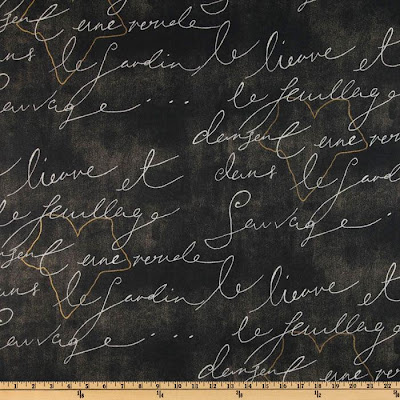 sent une ronde
dans le jardin le lieuve et
Sauvage ... le feuillage
dansent une ronde
lieuve et dans le jard
le feuillage Sauvage ...
ansent une ronde
dans le jardin le lieuve et
Sauvage ... le feuillage
dansent une ronde
1 2 3 4 5 6 7 8 9 10 11 12 13 14 15 16 17 18 19 20 21 22
1/8 1/4 3/8 1/2 5/8